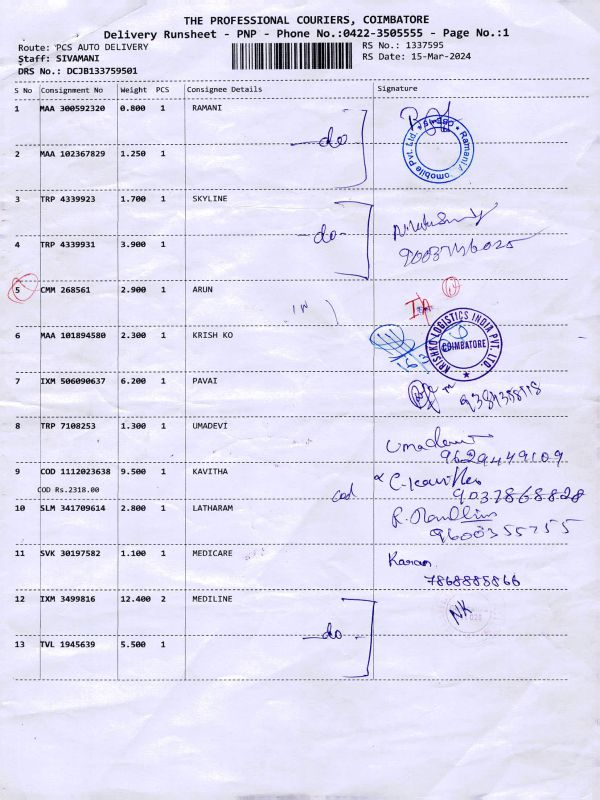 THE PROFESSIONAL COURIERS, COIMBATORE
Delivery Runsheet - PNP - Phone No.:0422-3505555 - Page No.:1
Route: PCS AUTO DELIVERY RS No.: 1337595
Staff: SIVAMANI RS Date: 15-Mar-2024
DRS No.: DCJB133759501
S No Consignment No Weight PCS Consignee Details Signature
1 MAA 300592320 0.800 1 RAMANI
do
Ramani
Pvt. Ltd.
2 MAA 102367829 1.250 1
3 TRP 4339923 1.700 1 SKYLINE
do
4 TRP 4339931 3.900 1
5 CMM 268561 2.900 1 ARUN
6 MAA 101894580 2.300 1 KRISH KO
KRISHKO LOGISTICS INDIA PVT. LTD.
COIMBATORE
7 IXM 506090637 6.200 1 PAVAI
8 TRP 7108253 1.300 1 UMADEVI
Umadevi
9629449109
9 COD 1112023638 9.500 1 KAVITHA
COD Rs.2318.00
cod
C. Kavitha
9037868828
10 SLM 341709614 2.800 1 LATHARAM
9600355755
11 SVK 30197582 1.100 1 MEDICARE
Karan
7868885866
12 IXM 3499816 12.400 2 MEDILINE
do
NK
13 TVL 1945639 5.500 1